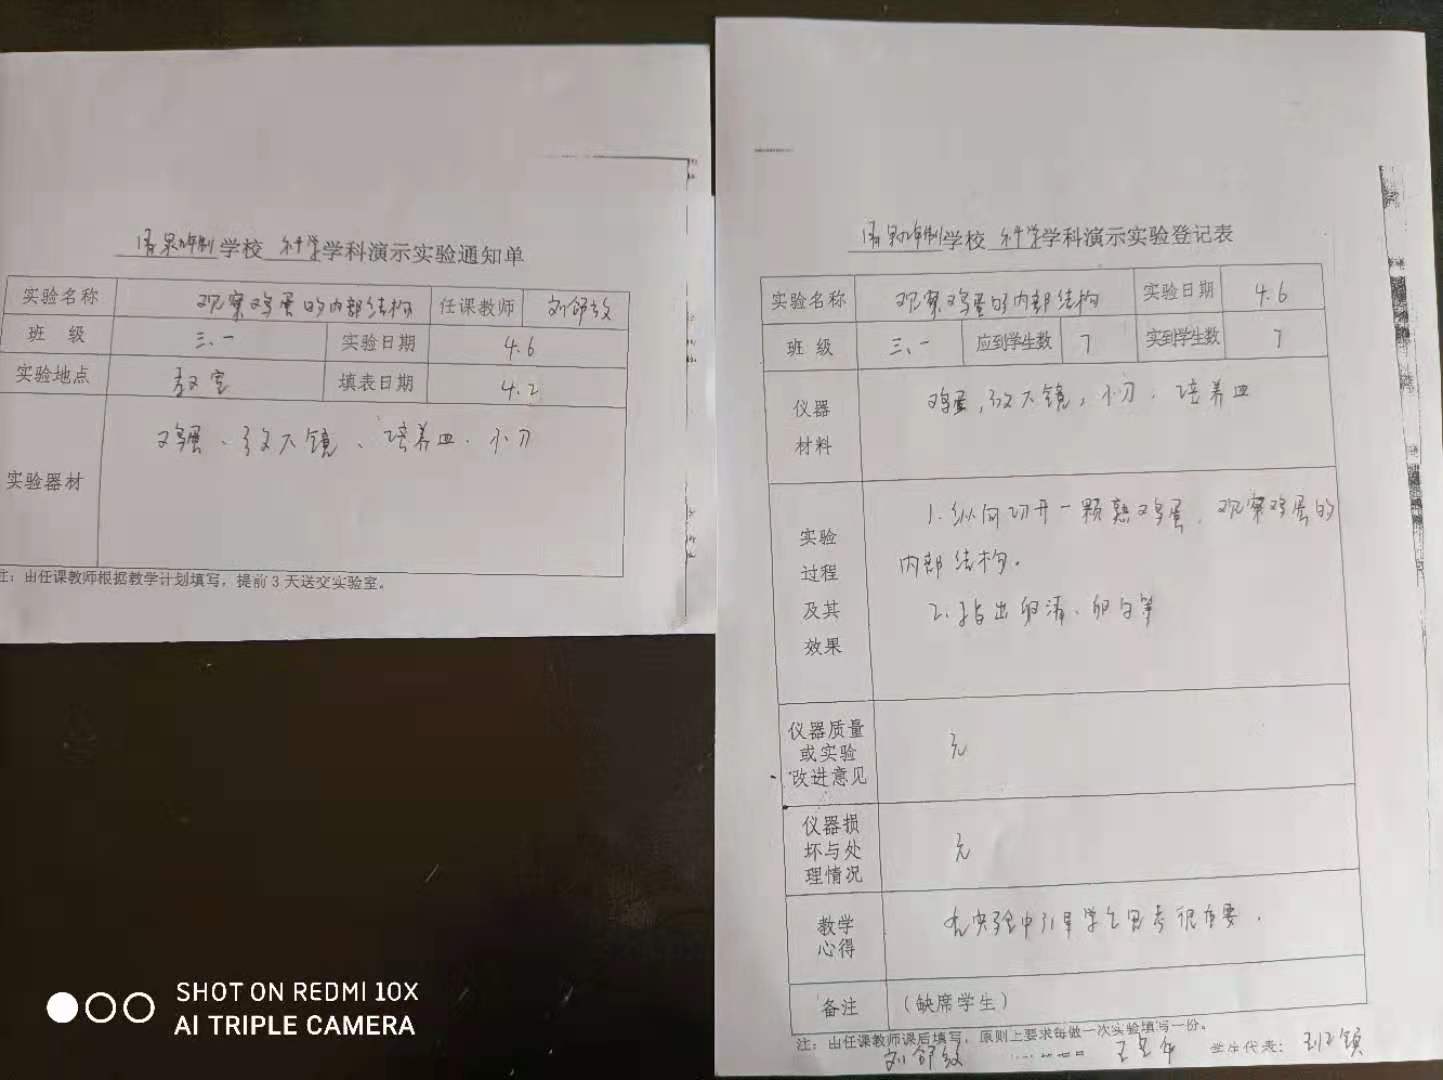 学校 科学学科演示实验通知单
实验名称 观察鸡蛋的内部结构 任课教师
班 级 三、一 实验日期 4.6
实验地点 教室 填表日期 4.2
实验器材 鸡蛋、放大镜、培养皿、小刀
注：由任课教师根据教学计划填写，提前3天送交实验室。
学校 科学学科演示实验登记表
实验名称 观察鸡蛋的内部结构 实验日期 4.6
班 级 三、一 应到学生数 7 实到学生数 7
仪器
材料
鸡蛋，放大镜，小刀、培养皿
实验
过程
及其
效果
1.纵向切开一颗熟鸡蛋，观察鸡蛋的
内部结构。
2.指出卵清、卵白等
仪器质量
或实验
改进意见
无
仪器损
坏与处
理情况
无
教学
心得
在实验中引导学生思考很重要.
备注 （缺席学生）
注：由任课教师课后填写，原则上要求每做一次实验填写一份。
学生代表：
SHOT ON REDMI 10X
AI TRIPLE CAMERA